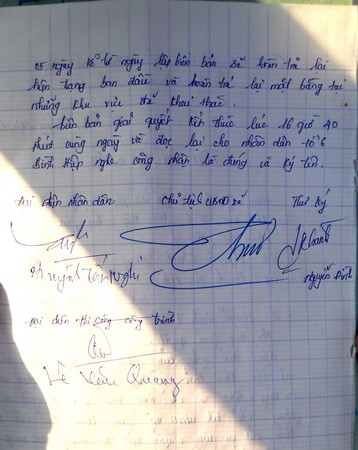 05 ngày kể từ ngày lập biên bản sẽ hoàn trả lại
hiện trạng ban đầu và hoàn trả lại mặt bằng tại
những khu vực đã khai thác.
biên bản giải quyết kết thúc lúc 16 giờ 40
phút cùng ngày và đọc lại cho nhân dân tổ 6
Bình Hiệp nghe công nhận là đúng và ký tên.
Đại diện nhân dân Chủ tịch UBND xã Thư ký
Huỳnh Tấn Nghi
Nguyễn Đình
Đại diện thi công công trình
Lê Văn Quang